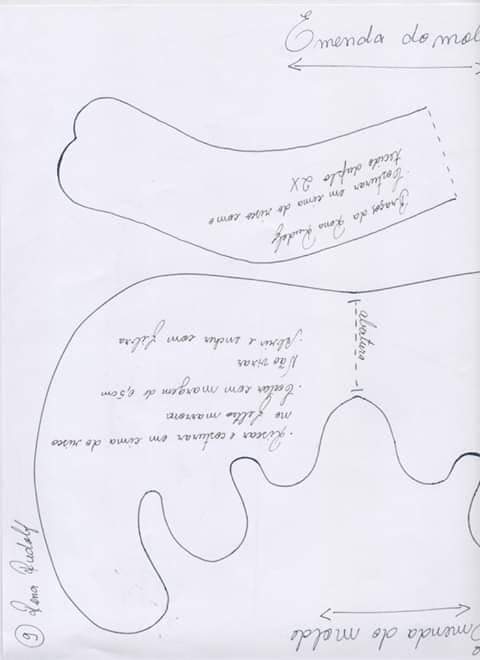 Emenda do mol
Braços da Rena Rudolf
.Costurar em cima do risco como
tecido duplo 2X
abertura
.Riscar e costurar em cima do risco
no feltro marrom
.Cortar com margem de 0,5cm
Não virar
.Abrir e encher com fibra
9 Rena Rudolf
Emenda do molde